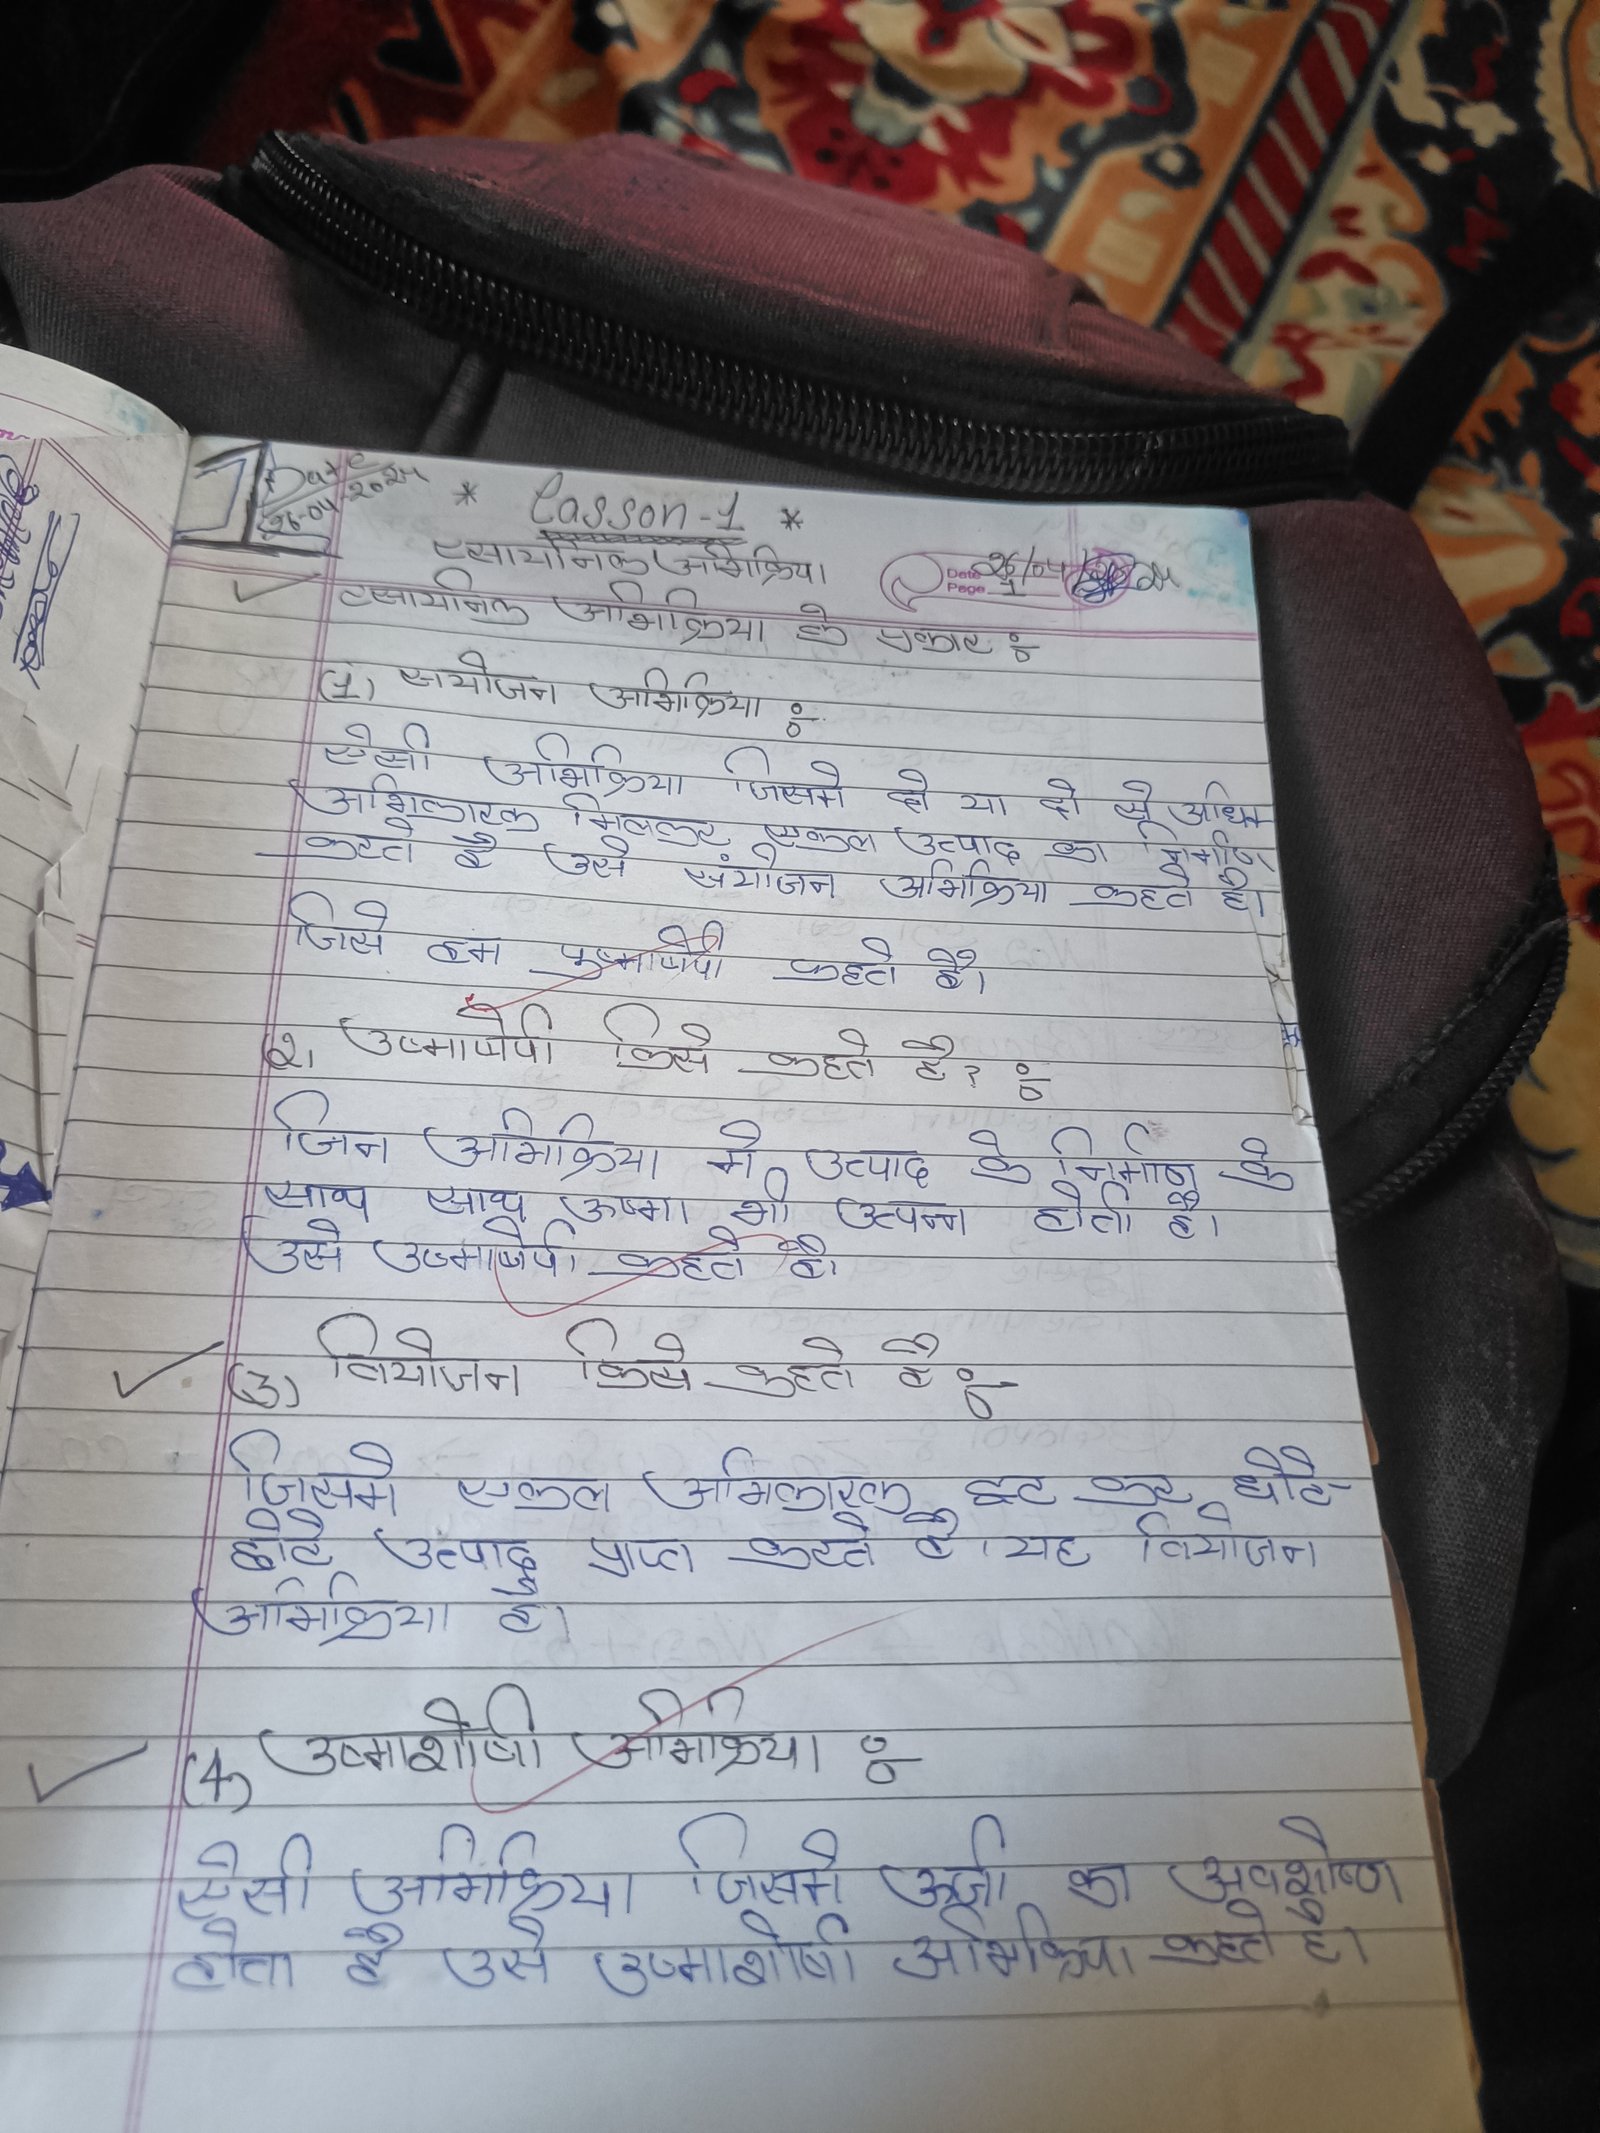 1 Date 26-04-2024
* Lasson-1 *
रसायनिक अभिक्रिया
Date 26/04/24
Page 1
रसायनिक अभिक्रिया के प्रकार :-
(1) सयोजन अभिक्रिया :-
ऐसी अभिक्रिया जिसमे दो या दो से अधिक
अभिकारक मिलकर एकल उत्पाद का निर्माण
करते है उसे संयोजन अभिक्रिया कहते है।
जिसे हम कहते है।
(2) उष्माक्षेपी किसे कहते है? :-
जिन अभिक्रिया मे उत्पाद के निर्माण के
साथ साथ ऊष्मा भी उत्पन्न होती है।
उसे उष्माक्षेपी कहते है।
(3) वियोजन किसे कहते है :-
जिसमे एकल अभिकारक टुट कर छोटे-
छोटे उत्पाद प्राप्त करते है। यह वियोजन
अभिक्रिया है।
(4) उष्माशोषी अभिक्रिया :-
ऐसी अभिक्रिया जिसमे ऊर्जा का अवशोषण
होता है उसे उष्माशोषी अभिक्रिया कहते है।